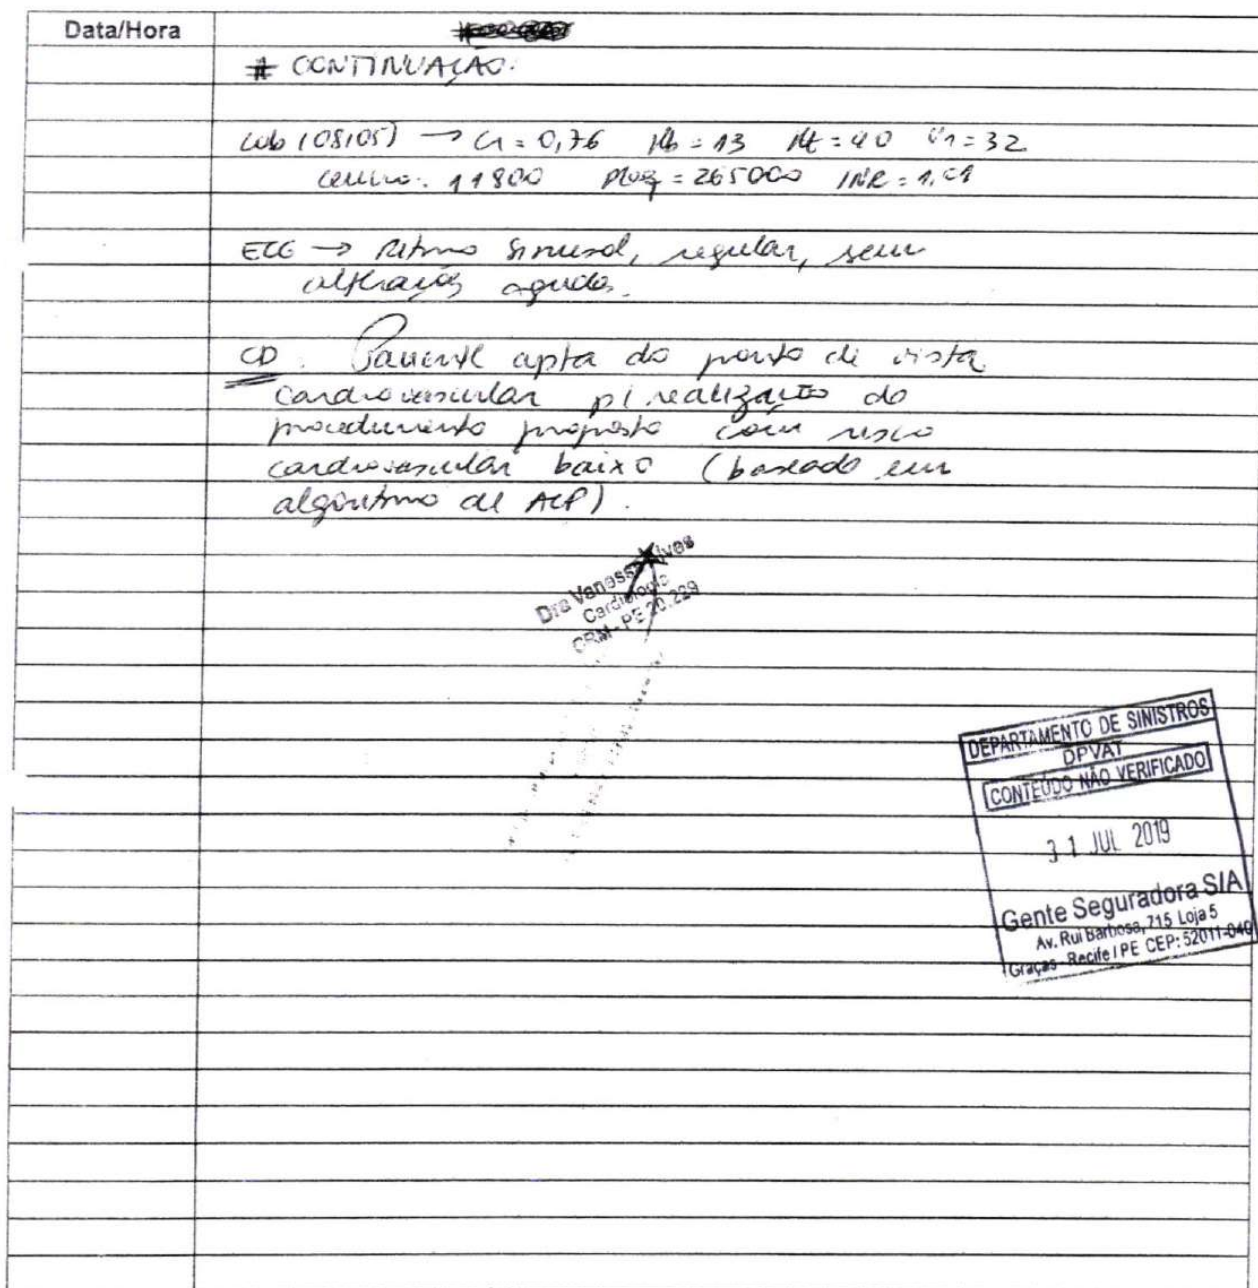 Data/Hora
# CONTINUAÇÃO.
Lab (08/05) → Cr = 0,76 Hb = 13 Ht = 40 Ur = 32
Leuco: 11800 Plaq = 265000 INR = 1,01
ECG → Ritmo sinusal, regular, sem
alterações agudas.
CD: Paciente apta do ponto de vista
cardiovascular p/ realização do
procedimento proposto com risco
cardiovascular baixo (baseado em
algoritmo de ACP).
Dra Vanessa Alves
Cardiologia
CRM - PE 20.229
DEPARTAMENTO DE SINISTROS
DPVAT
CONTEÚDO NÃO VERIFICADO
31 JUL 2019
Gente Seguradora S/A
Av. Rui Barbosa, 715 Loja 5
Graças - Recife / PE CEP: 52011-040